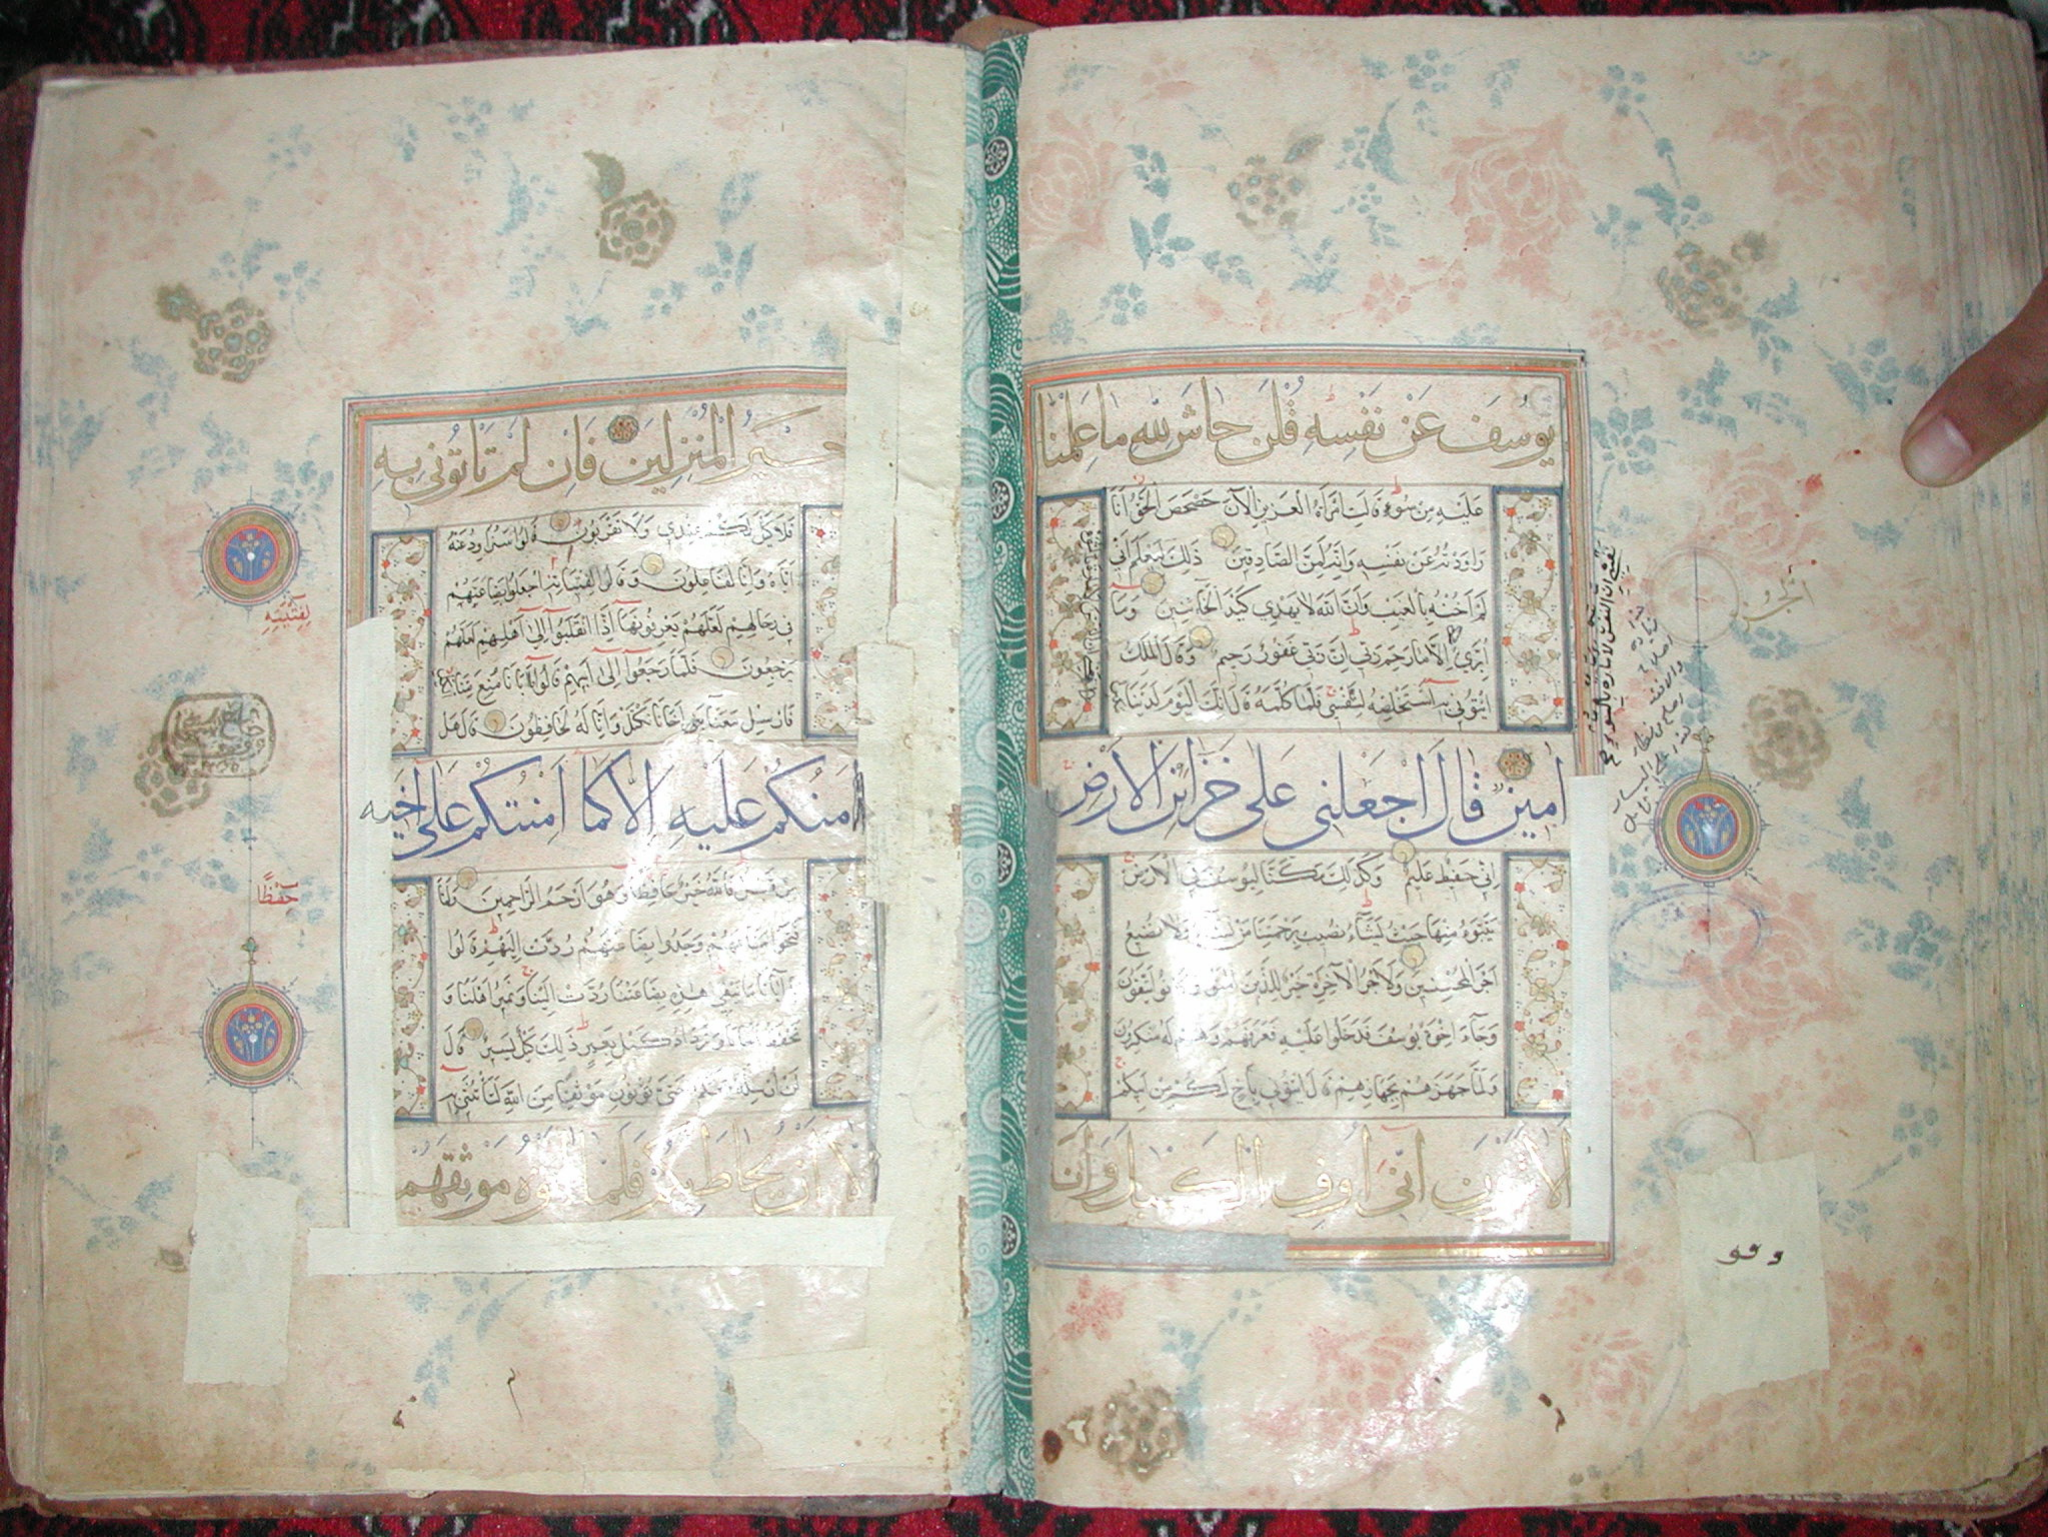 يوسف عن نفسه قلن حاش لله ما علمنا
عليه من سوء قالت امرأة العزيز الآن حصحص الحق أنا
راودته عن نفسه وإنه لمن الصادقين ذلك ليعلم أني
لم أخنه بالغيب وأن الله لا يهدي كيد الخائنين وما
أبرئ إلا ما رحم ربي إن ربي غفور رحيم وقال الملك
ائتوني به أستخلصه لنفسي فلما كلمه قال إنك اليوم لدينا مكين
أمين قال اجعلني على خزائن الأرض
إني حفيظ عليم وكذلك مكنا ليوسف في الأرض
يتبوء منها حيث يشاء نصيب برحمتنا من نشاء ولا نضيع
أجر المحسنين ولأجر الآخرة خير للذين آمنوا وكانوا يتقون
وجاء إخوة يوسف فدخلوا عليه فعرفهم وهم له منكرون
ولما جهزهم بجهازهم قال ائتوني بأخ لكم من أبيكم
ألا ترون أني أوف الكيل وأنا
نفسي إن النفس لأمارة بالسوء صح
الجزء
وقف
خير المنزلين فإن لم تأتوني به
فلا كيل لكم عندي ولا تقربون قالوا سنراود عنه
أباه وإنا لفاعلون وقال لفتيانه اجعلوا بضاعتهم
في رحالهم لعلهم يعرفونها إذا انقلبوا إلى أهلهم لعلهم
يرجعون فلما رجعوا إلى أبيهم قالوا يا أبانا منع منا
فأرسل معنا أخانا نكتل وإنا له لحافظون قال هل
آمنكم عليه إلا كما أمنتكم على أخيه
من قبل فالله خير حافظا وهو أرحم الراحمين ولما
فتحوا متاعهم وجدوا بضاعتهم ردت إليهم قالوا
يا أبانا ما نبغي هذه بضاعتنا ردت إلينا ونمير أهلنا و
نحفظ أخانا ونزداد كيل بعير ذلك كيل يسير قال
لن أرسله معكم حتى تؤتون موثقا من الله لتأتنني به
إلا أن يحاط بكم فلما آتوه موثقهم
لِفِتْيَتِهِ
حِفْظًا